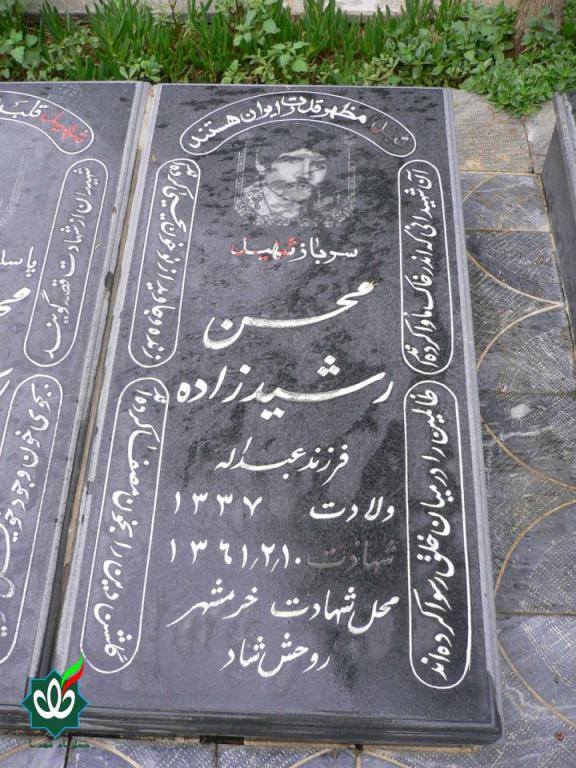 مظهر قدرت ایران هستند
سرباز شهید
محسن
رشیدزاده
فرزند عبداله
ولادت ۱۳۳۷
شهادت ۱۳۶۱٫۲٫۱۰
محل شهادت خرمشهر
روحش شاد
آن شهیدانی که اندر خاک ماوا کرده اند
ظالمین را در میان خلق رسوا کرده اند
گلشن دین را بخون
شهید قلب
شهیدان از شهادت
بجوی خون وجود خویش